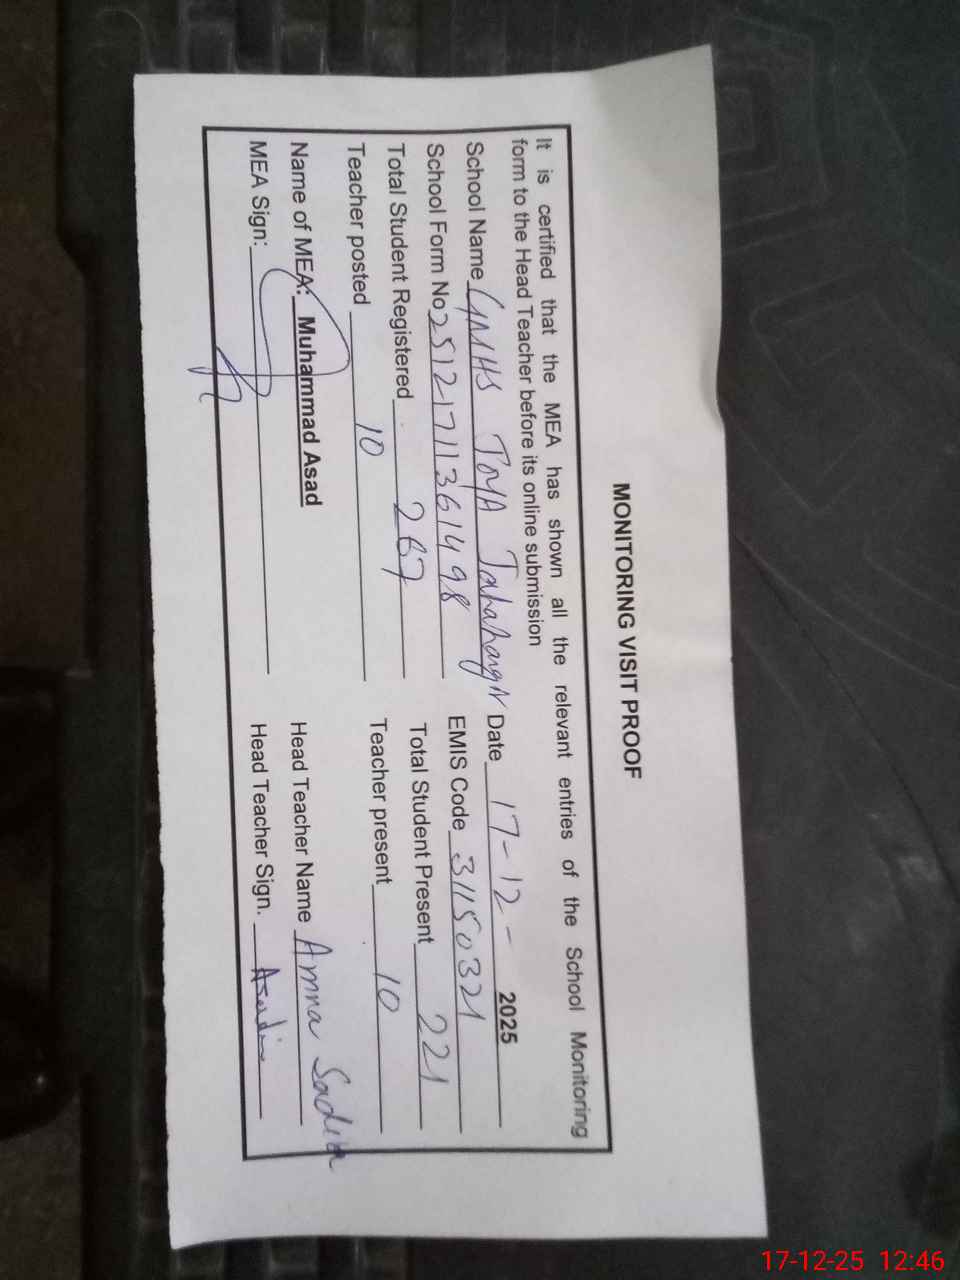 MONITORING VISIT PROOF
It is certified that the MEA has shown all the relevant entries of the School Monitoring
form to the Head Teacher before its online submission
School Name GMHS TOYA Date 17-12- 2025
School Form No 25121711361498 EMIS Code 31150321
Total Student Registered 267 Total Student Present 221
Teacher posted 10 Teacher present 10
Name of MEA: Muhammad Asad Head Teacher Name Amna Sadia
MEA Sign: Head Teacher Sign.
17-12-25 12:46